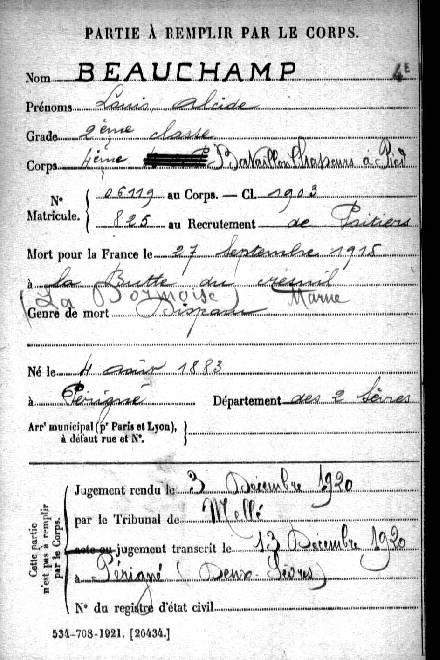 PARTIE À REMPLIR PAR LE CORPS.
Nom BEAUCHAMP 4E
Prénoms Louis Alcide
Grade 2ème classe
Corps 4ème Bataillon Chasseurs à Pied
N° Matricule. 06119 au Corps. — Cl. 1903
825 au Recrutement de Poitiers
Mort pour la France le 27 Septembre 1915
à la Butte du Mesnil
(La Bormoise) Marne
Genre de mort Disparu
Né le 4 1883
à Périgné Département des 2 Sèvres
Arrt municipal (pr Paris et Lyon), à défaut rue et N°.
Cette partie n'est pas à remplir par le Corps.
Jugement rendu le 3 Décembre 1920
par le Tribunal de Melle
acte ou jugement transcrit le 13 Décembre 1920
à Périgné (Deux-Sèvres)
N° du registre d'état civil
534-708-1921. [26434.]